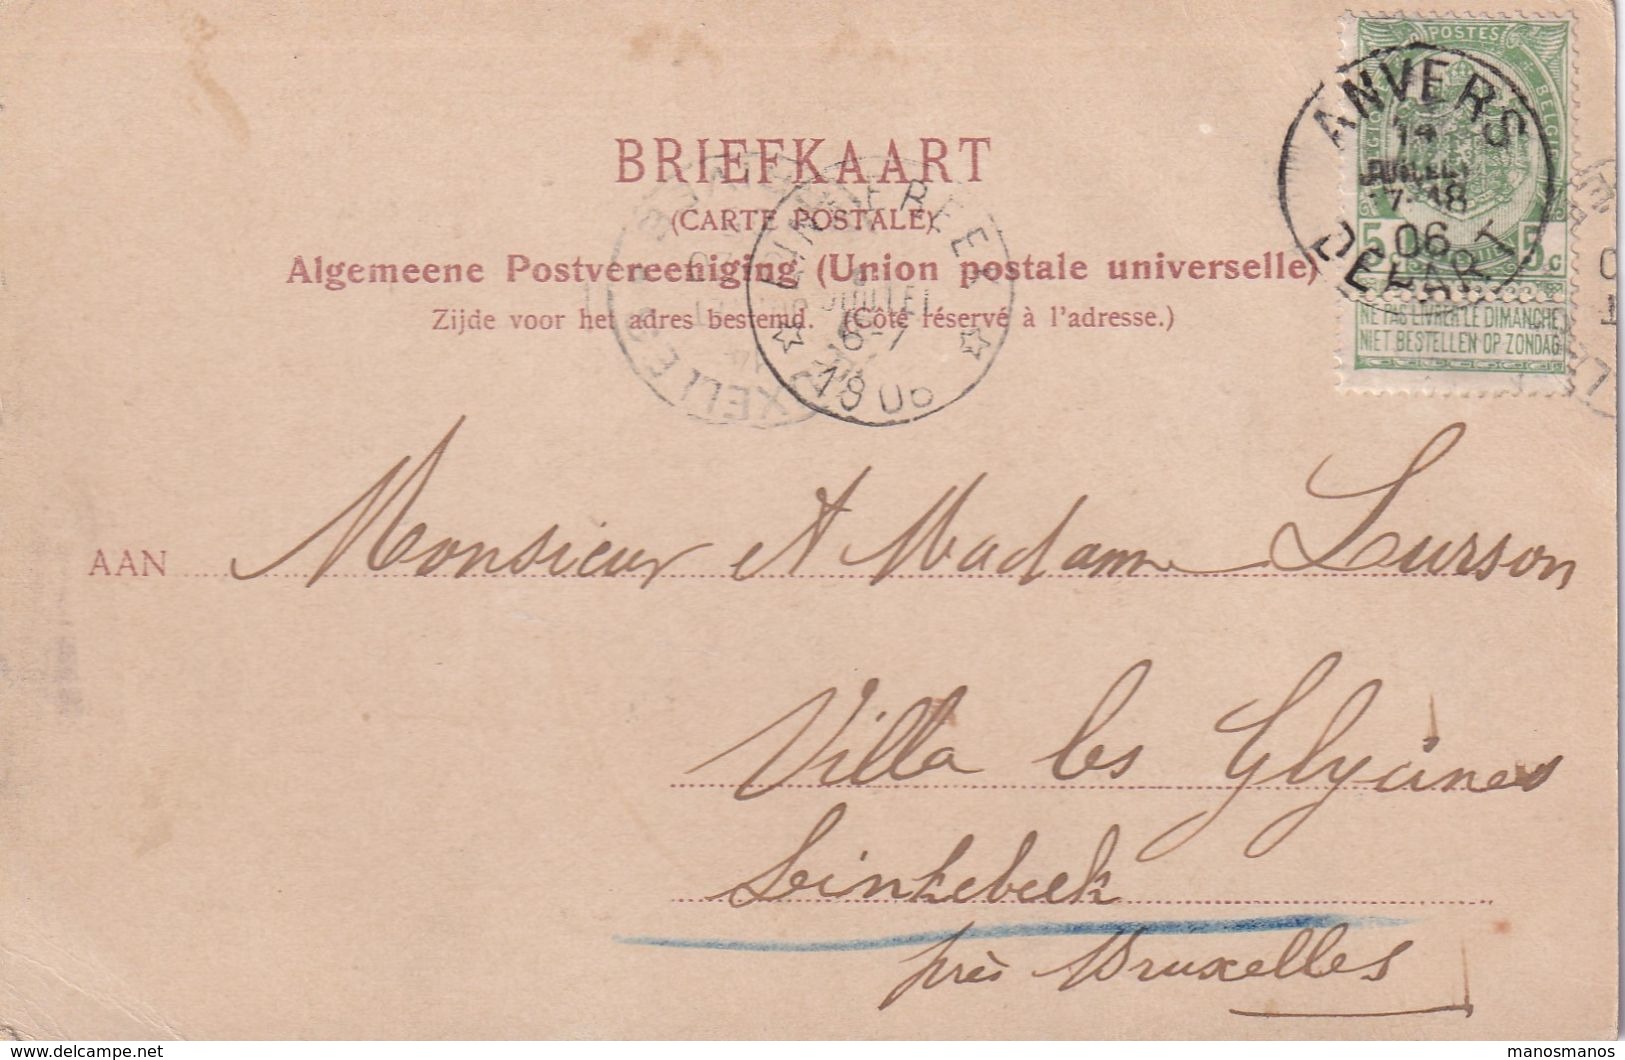 POSTES
BELGIQUE BELGIE
ANVERS
JUILLET
7-18
06
DEPART
5 5c
NE PAS LIVRER LE DIMANCHE
NIET BESTELLEN OP ZONDAG
BRIEFKAART
(CARTE POSTALE)
Algemeene Postvereeniging (Union postale universelle)
Zijde voor het adres bestemd. (Côté réservé à l'adresse.)
JUILLET
6-7
1906
AAN Monsieur et Madame Lurson
Villa les Glycines
Linkebeek
près Bruxelles
manosmanos